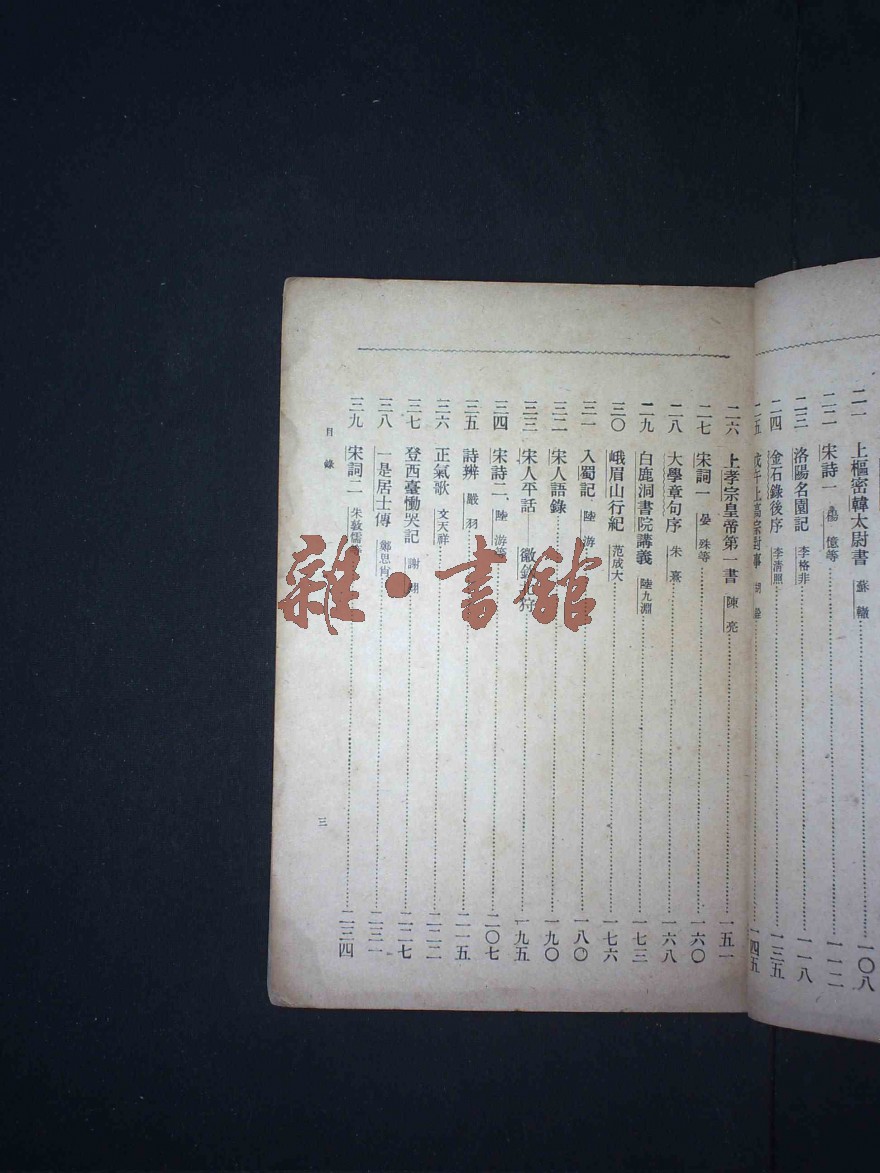 二一 上樞密韓太尉書 蘇轍 一〇八
二二 宋詩一 楊億等 一一二
二三 洛陽名園記 李格非 一一八
二四 金石錄後序 李清照 一三五
二五 戊午上高宗封事 胡 一四五
二六 上孝宗皇帝第一書 陳亮 一五一
二七 宋詞一 晏殊等 一六〇
二八 大學章句序 朱熹 一六八
二九 白鹿洞書院講義 陸九淵 一七三
三〇 峨眉山行紀 范成大 一七六
三一 入蜀記 陸游 一八〇
三二 宋人語錄 一九〇
三三 宋人平話 徽 狩 一九五
三四 宋詩二、陸游等 二〇七
三五 詩辨 嚴羽 二一五
三六 正氣歌 文天祥 二二二
三七 登西臺慟哭記 謝翱 二二七
三八 一是居士傳 鄭思肖 二三一
三九 宋詞二 朱敦儒等 二三四
目錄
三
雜·書館